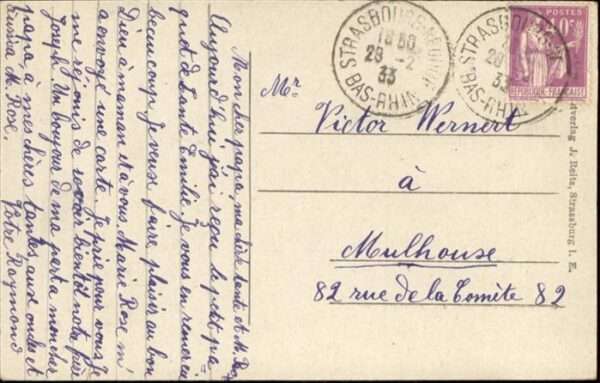 Mon cher papa, ma chère tante et M. Rose
Aujourd'hui j'ai reçu le petit pa
quet de tante Emilie. Je vous en remercie
beaucoup. Je veux faire plaisir au bon
Dieu à maman et à vous. Marie Rose m'
a envoyé une carte. Je prie pour vous. Je
me réjouis de revoir bientôt notre frère
Joseph. Un bonjour de ma part à mon cher
papa, à mes chères tantes aux oncles et
cousin M. Rose.
Votre Raymond
STRASBOURG-NEUDORF
18 30
28 -2
33
BAS-RHIN
STRASBOURG-NEUDORF
28 -2
33
BAS-RHIN
POSTES
40c
REPUBLIQUE FRANÇAISE
Mr
Victor Wernert
à
Mulhouse
82 rue de la Comète 82
verlag J. Reitz, Strassburg i. E.